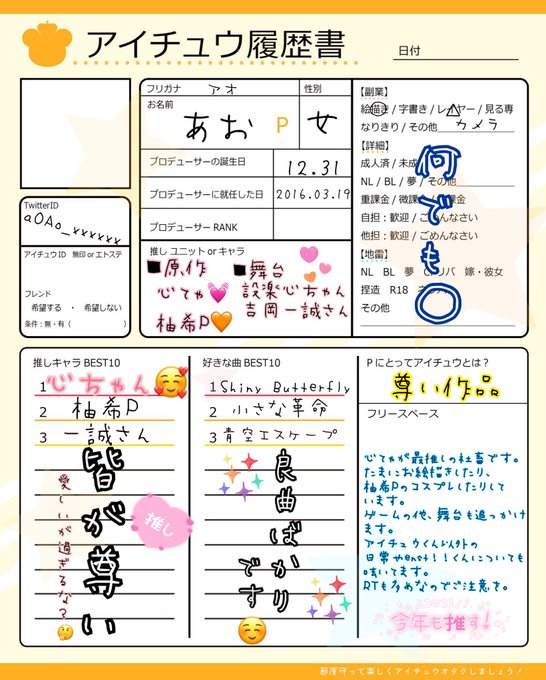 アイチュウ履歴書
日付
フリガナ
アオ
性別
お名前
あお P
女
プロデューサーの誕生日
12.31
プロデューサーに就任した日
2016.03.19
プロデューサー RANK
推し ユニット or キャラ
■原作
心てゃ💓
柚希P🧡
■舞台
設楽心ちゃん
吉岡一誠さん
【副業】
絵描き / 字書き / レイヤー / 見る専
なりきり / その他 カメラ
【詳細】
成人済 / 未成
NL / BL / 夢 / その他
重課金 / 微課金
自担：歓迎 / ごめんなさい
他担：歓迎 / ごめんなさい
【地雷】
NL BL 夢 嫁・彼女
捏造 R18
その他
何でも〇
TwitterID
a0Ao_xxxxxx
アイチュウ ID 無印 or エトステ
フレンド
希望する ・ 希望しない
条件 : 無・有 ( )
推しキャラ BEST10
1 心ちゃん🥰
2 柚希P
3 一誠さん
皆が尊い
愛しいが過ぎるな?🤔
推し
好きな曲 BEST10
1 Shiny Butterfly
2 小さな革命
3 青空エスケープ
良曲ばかりです☺️
P にとってアイチュウとは？
尊い作品
フリースペース
心てゃが最推しの社畜です。
たまにお絵描きしたり、
柚希Pのコスプレしたりして
います。
ゲームの他、舞台も追っかけ
ます。
アイチュウくん以外の
日常やenst!!くんについても
呟いてます。
RTも多めなのでご注意を。
今年も推す!
節度守って楽しくアイチュウオタクしましょう！